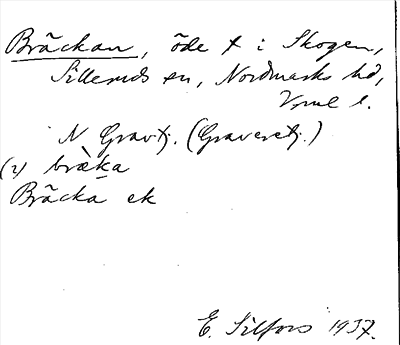 Bräckan, öde t i Skogen,
Silleruds sn, Nordmarks hd,
Vrml l.
N Gravtj. (Graveretj.)
(2) bræ̀ka
Bräcka ek
E. Silfors 1937.